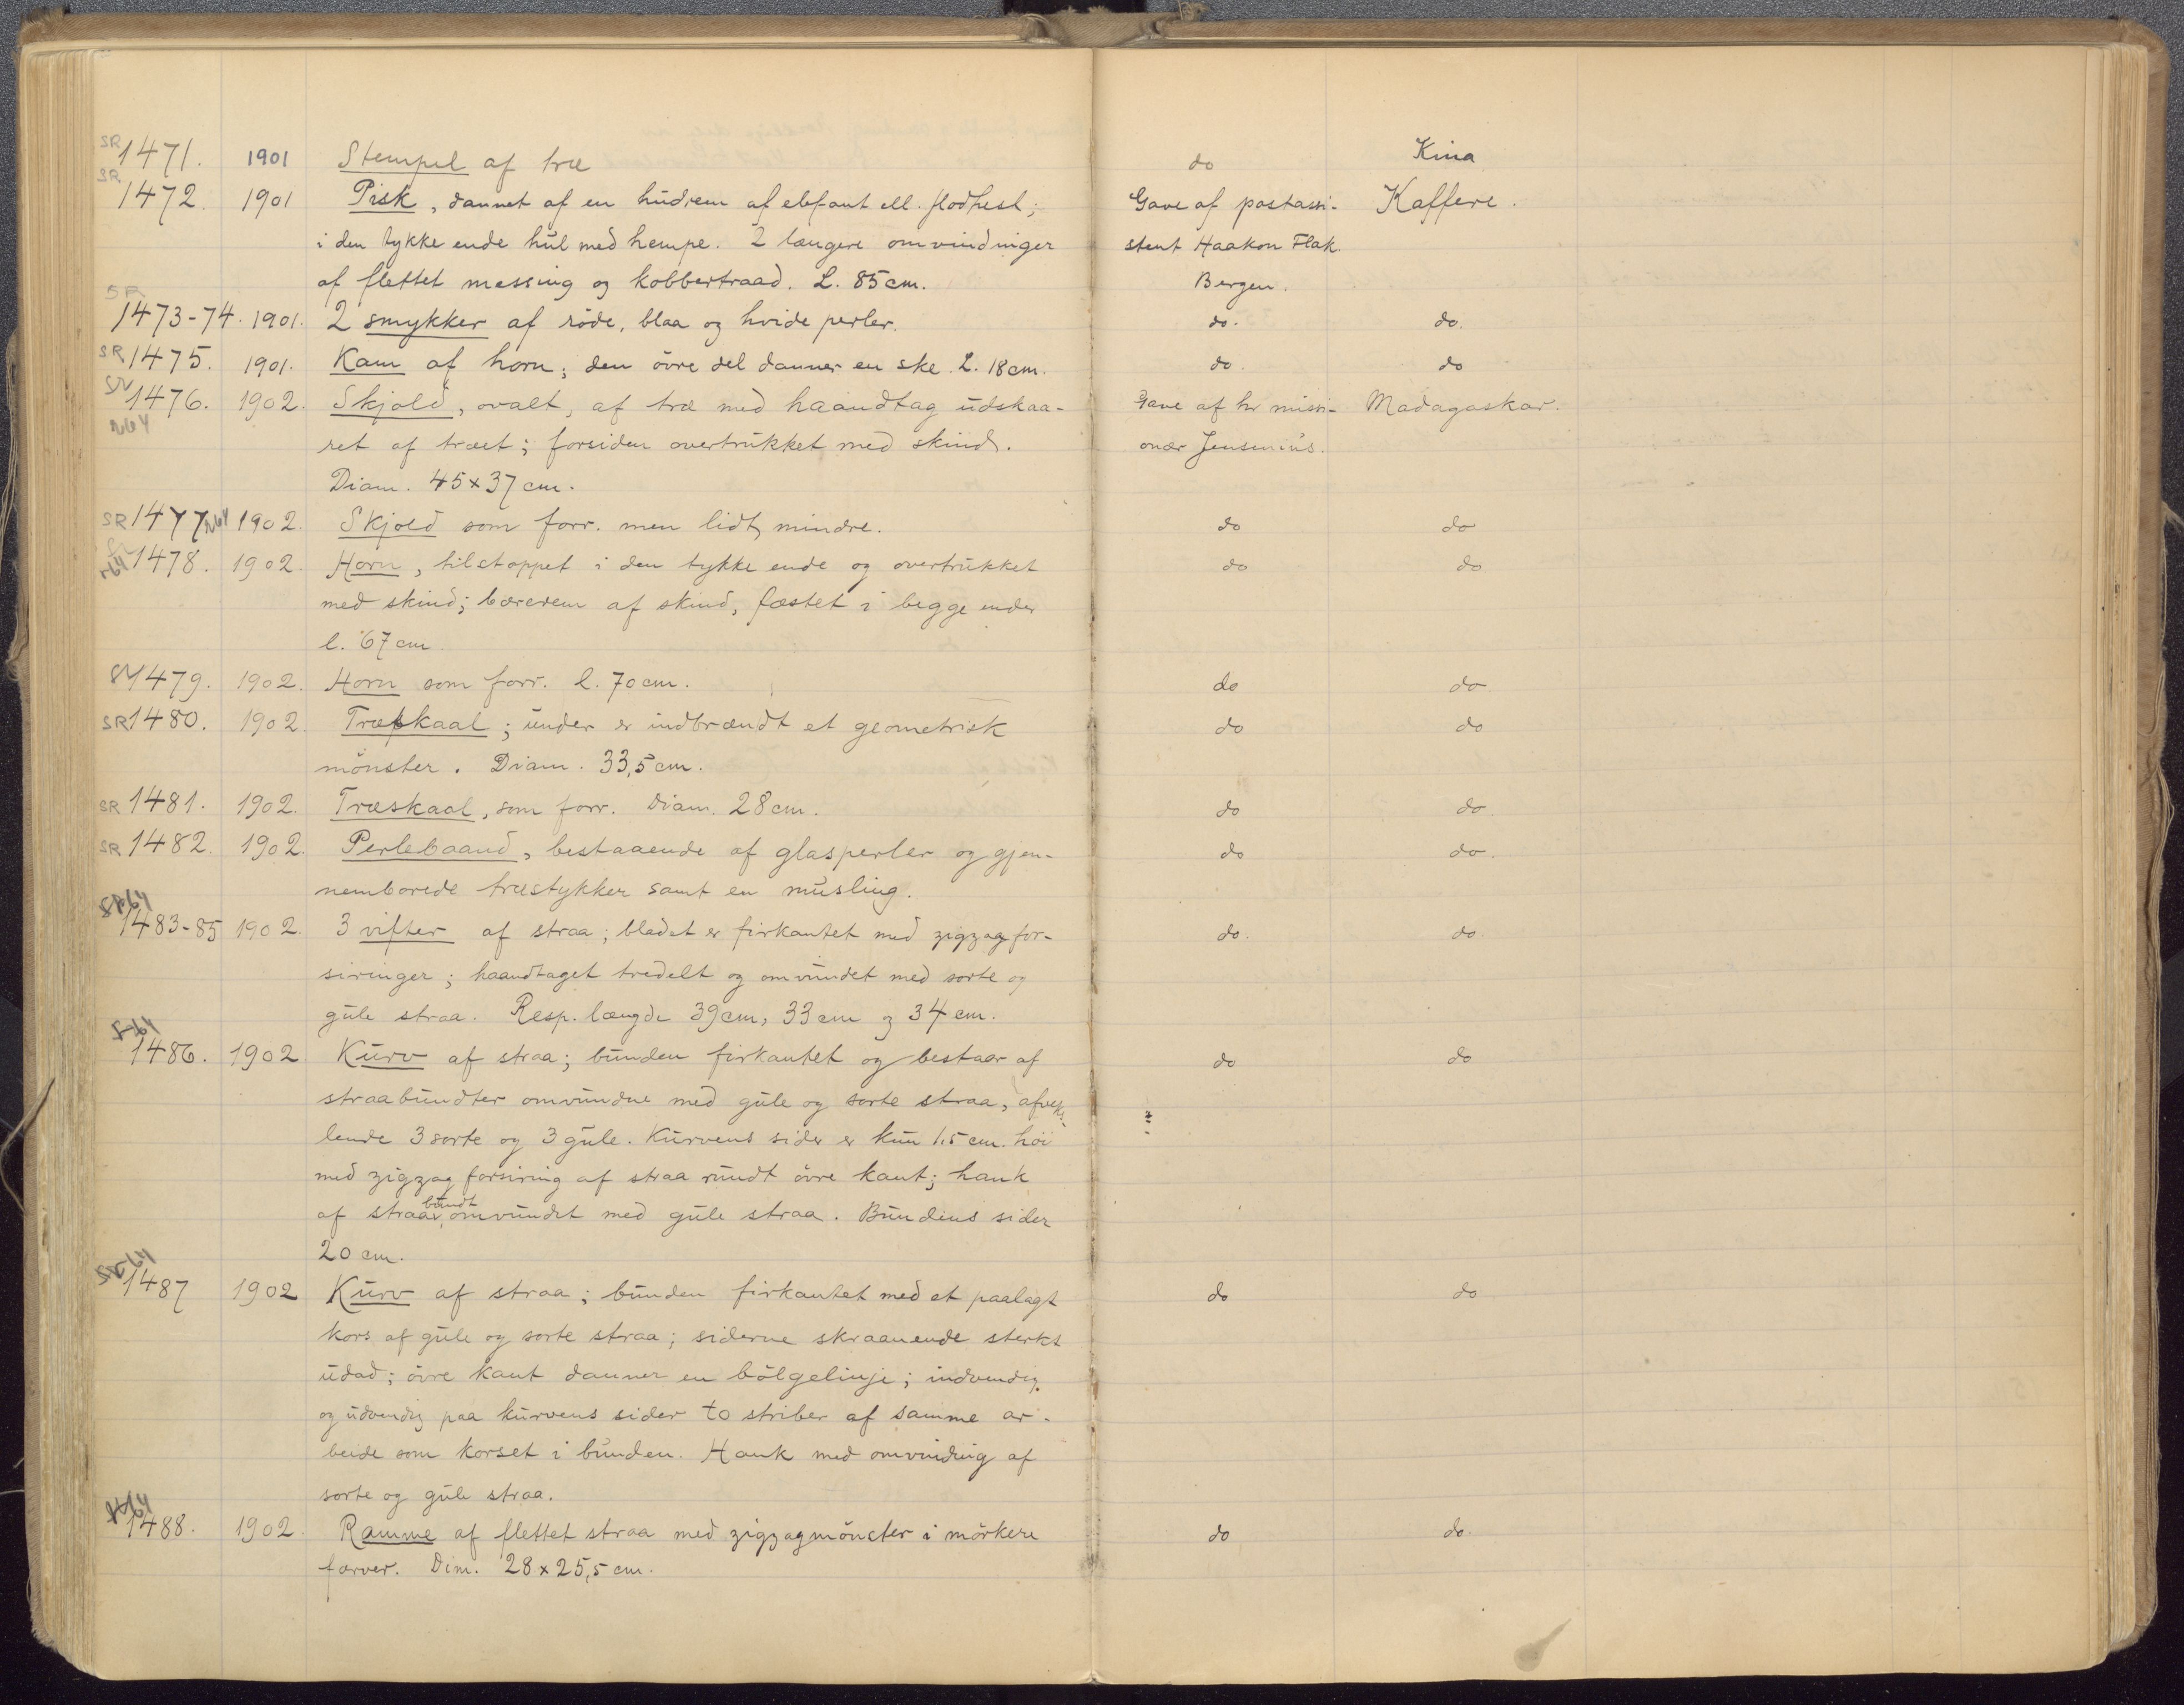 SR 1471. 1901 Stempel af træ do Kina
SR 1472. 1901 Pisk, dannet af en hudrem af elefant ell. flodhest; Gave af postassi- Kaffere.
i den tykke ende hul med hempe. 2 længere omvindinger stent Haakon Flak.
af flettet messing og kobbertraad. L. 85 cm. Bergen.
SR 1473-74. 1901. 2 smykker af röde, blaa og hvide perler. do. do.
SR 1475. 1901. Kam af horn; den övre del danner en ske. L. 18 cm. do. do
SR 1476. 1902. Skjold, ovalt, af træ med haandtag udskaa- Gave af hr missi- Madagaskar.
ret af træet; forsiden overtrukket med skind. onær Jensenius.
Diam. 45 x 37 cm.
SR 1477 1902. Skjold som forr. men lidt mindre. do do
1478. 1902. Horn, tilstoppet i den tykke ende og overtrukket do do
med skind; bærerem af skind, fæstet i begge ender
l. 67 cm.
1479. 1902. Horn som forr. l. 70 cm. do do
SR 1480. 1902. Træskaal; under er indbrændt et geometrisk do do
mönster. Diam. 33,5 cm.
SR 1481. 1902. Træskaal, som forr. Diam. 28 cm. do do.
SR 1482. 1902. Perlebaand, bestaaende af glasperler og gjen- do do.
nemborede træstykker samt en musling.
1483-85 1902. 3 vifter af straa; bladet er firkantet med zigzag for- do. do.
siringer; haandtaget tredelt og omvundet med sorte og
gule straa. Resp. længde 39 cm, 33 cm og 34 cm.
1486. 1902 Kurv af straa; bunden firkantet og bestaar af do do
straabundter omvundne med gule og sorte straa, afveks-
lende 3 sorte og 3 gule. Kurvens sider er kun 1,5 cm. höi
med zigzag forsiring af straa rundt övre kant; hank
bundt
af straa omvundet med gule straa. Bundens sider
20 cm.
1487 1902 Kurv af straa; bunden firkantet med et paalagt do do
kors af gule og sorte straa; siderne skraanende sterkt
udad; övre kant danner en bölgelinje; indvendig
og udvendig paa kurvens sider to striber af samme ar-
beide som korset i bunden. Hank med omvinding af
sorte og gule straa.
1488. 1902. Ramme af flettet straa med zigzagmönster i mörkere do do.
farver. Dim. 28 x 25,5 cm.